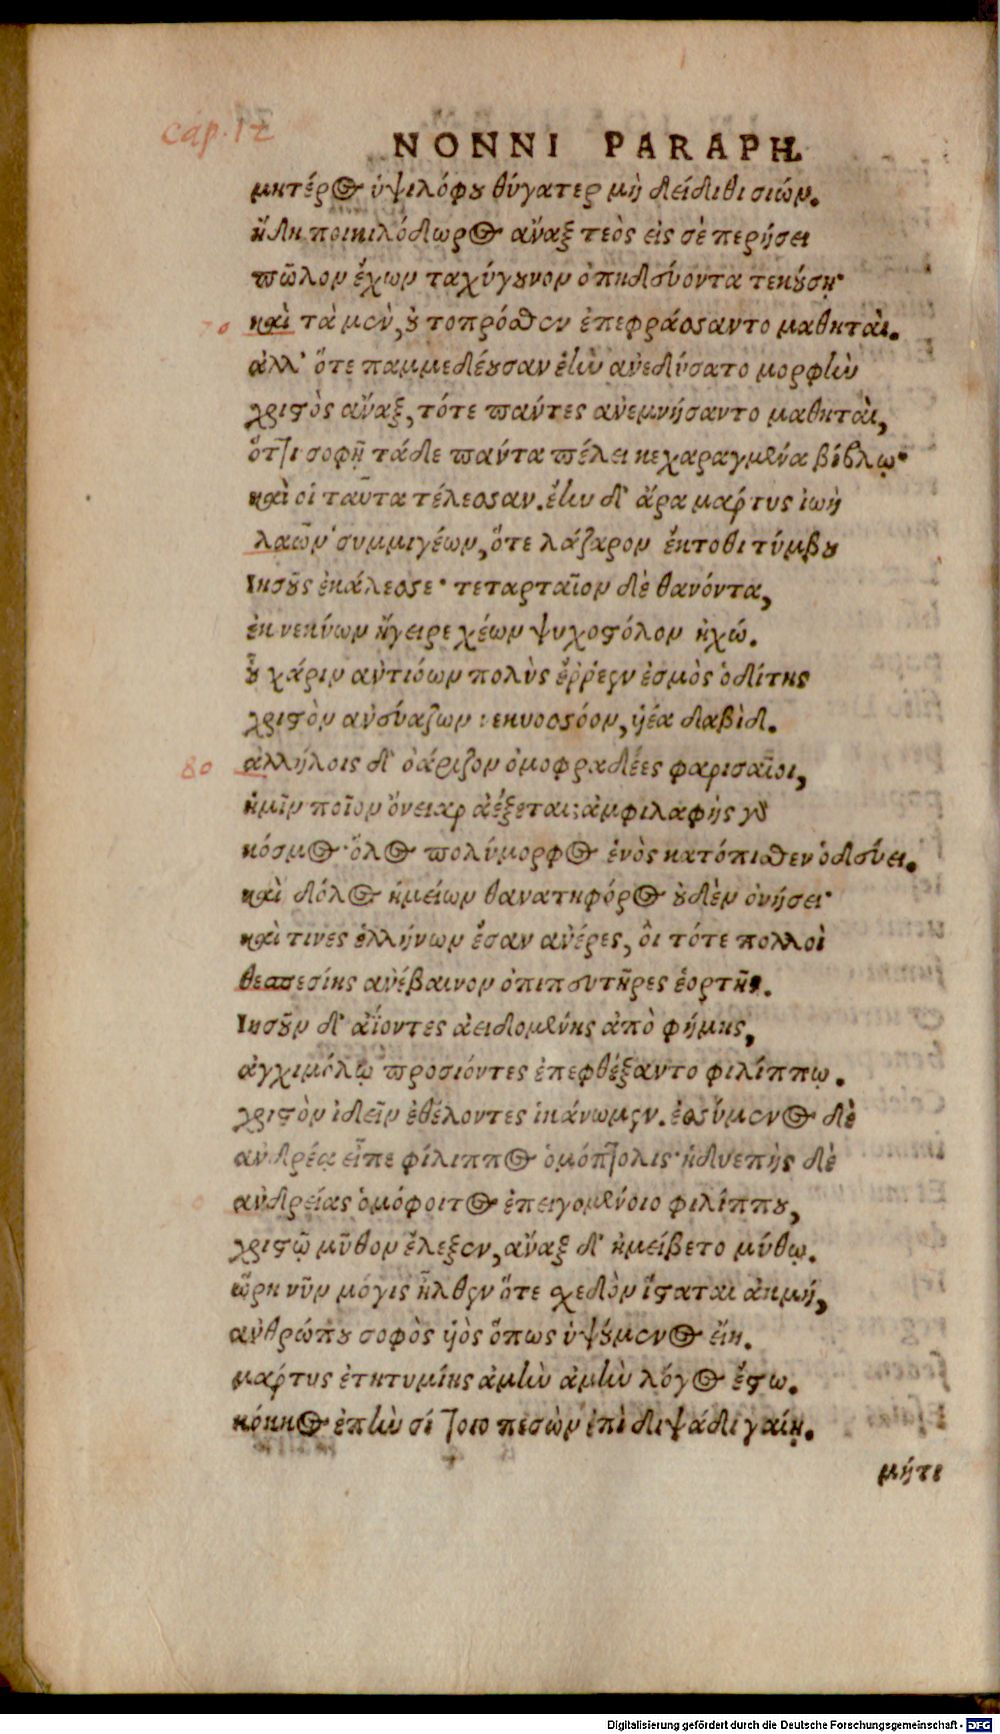 cap. 12
NONNI PARAPH.
μητέρος ὑψιλόφου θύγατερ μὴ δείδιθι σιών.
ἤδη ποικιλόδωρος ἄναξ τεὸς εἰς σὲ περήσει
πῶλον ἔχων ταχύγουνον ὀπηδεύοντα τεκούσῃ·
70 καὶ τὰ μὲν, οὐ τοπρόσθεν ἐπεφράσσαντο μαθηταὶ.
ἀλλ' ὅτε παμμεδέουσαν ἑὴν ἀνεδύσατο μορφὴν
χριστὸς ἄναξ, τότε πάντες ἀνεμνήσαντο μαθηταὶ,
ὅττι σοφῇ τάδε πάντα πέλει κεχαραγμένα βίβλῳ·
καὶ οἱ ταῦτα τέλεσσαν. ἔην δ' ἄρα μάρτυς ἰωὴ
λαῶν συμμιγέων, ὅτε λάζαρον ἔκτοθι τύμβου
Ἰησοῦς ἐκάλεσσε· τεταρταῖον δὲ θανόντα,
ἐκ νεκύων ἤγειρε χέων ψυχοστόλον ἠχώ.
οὗ χάριν ἀντιόων πολὺς ἔῤῥεεν ἑσμὸς ὁδίτης
χριστὸν ἀνευάζων νεκυοσσόον, υἱέα δαβὶδ.
80 ἀλλήλοις δ' ὀάριζον ὁμοφραδέες φαρισαῖοι,
ἡμῖν ποῖον ὄνειαρ ἀέξεται; ἀμφιλαφὴς γὰρ
κόσμος ὅλος πολύμορφος ἑνὸς κατόπισθεν ὁδεύει.
καὶ δόλος ἡμείων θανατηφόρος οὐδὲν ὀνήσει·
καὶ τινες ἑλλήνων ἔσαν ἀνέρες, οἳ τότε πολλοὶ
θεσπεσίης ἀνέβαινον ὀπιπευτῆρες ἑορτῆς.
Ἰησοῦν δ' ἀΐοντες ἀειδομένης ἀπὸ φήμης,
ἀγχιμόλῳ προσιόντες ἐπεφθέξαντο φιλίππῳ.
χριστὸν ἰδεῖν ἐθέλοντες ἱκάνομεν. ἐσσύμενος δὲ
ἀνδρέᾳ εἶπε φίλιππος ὁμόπτολις· ἡδυεπὴς δὲ
ἀνδρείας ὁμόφοιτος ἐπειγομένοιο φιλίππου,
χριστῷ μῦθον ἔλεξεν, ἄναξ δ' ἠμείβετο μύθῳ.
ὥρη νῦν μόγις ἦλθεν ὅτε σχεδὸν ἵσταται ἀκμή,
ἀνθρώπου σοφὸς υἱὸς ὅπως ὑψούμενος εἴη.
μάρτυς ἐτητυμίης ἀμὴν ἀμὴν λόγος ἔστω.
κόκκος ἐπὴν σίτοιο πεσὼν ἐπὶ διψάδι γαίῃ.
μήτε
Digitalisierung gefördert durch die Deutsche Forschungsgemeinschaft - DFG